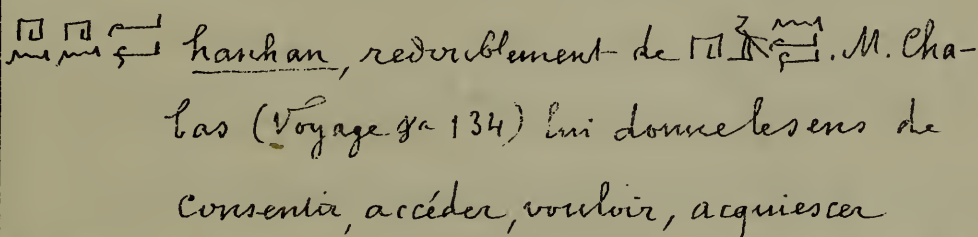 hanhan, redoublement de . M. Cha-
bas (Voyage 134) lui donne le sens de
consentir, accéder, vouloir, acquiescer